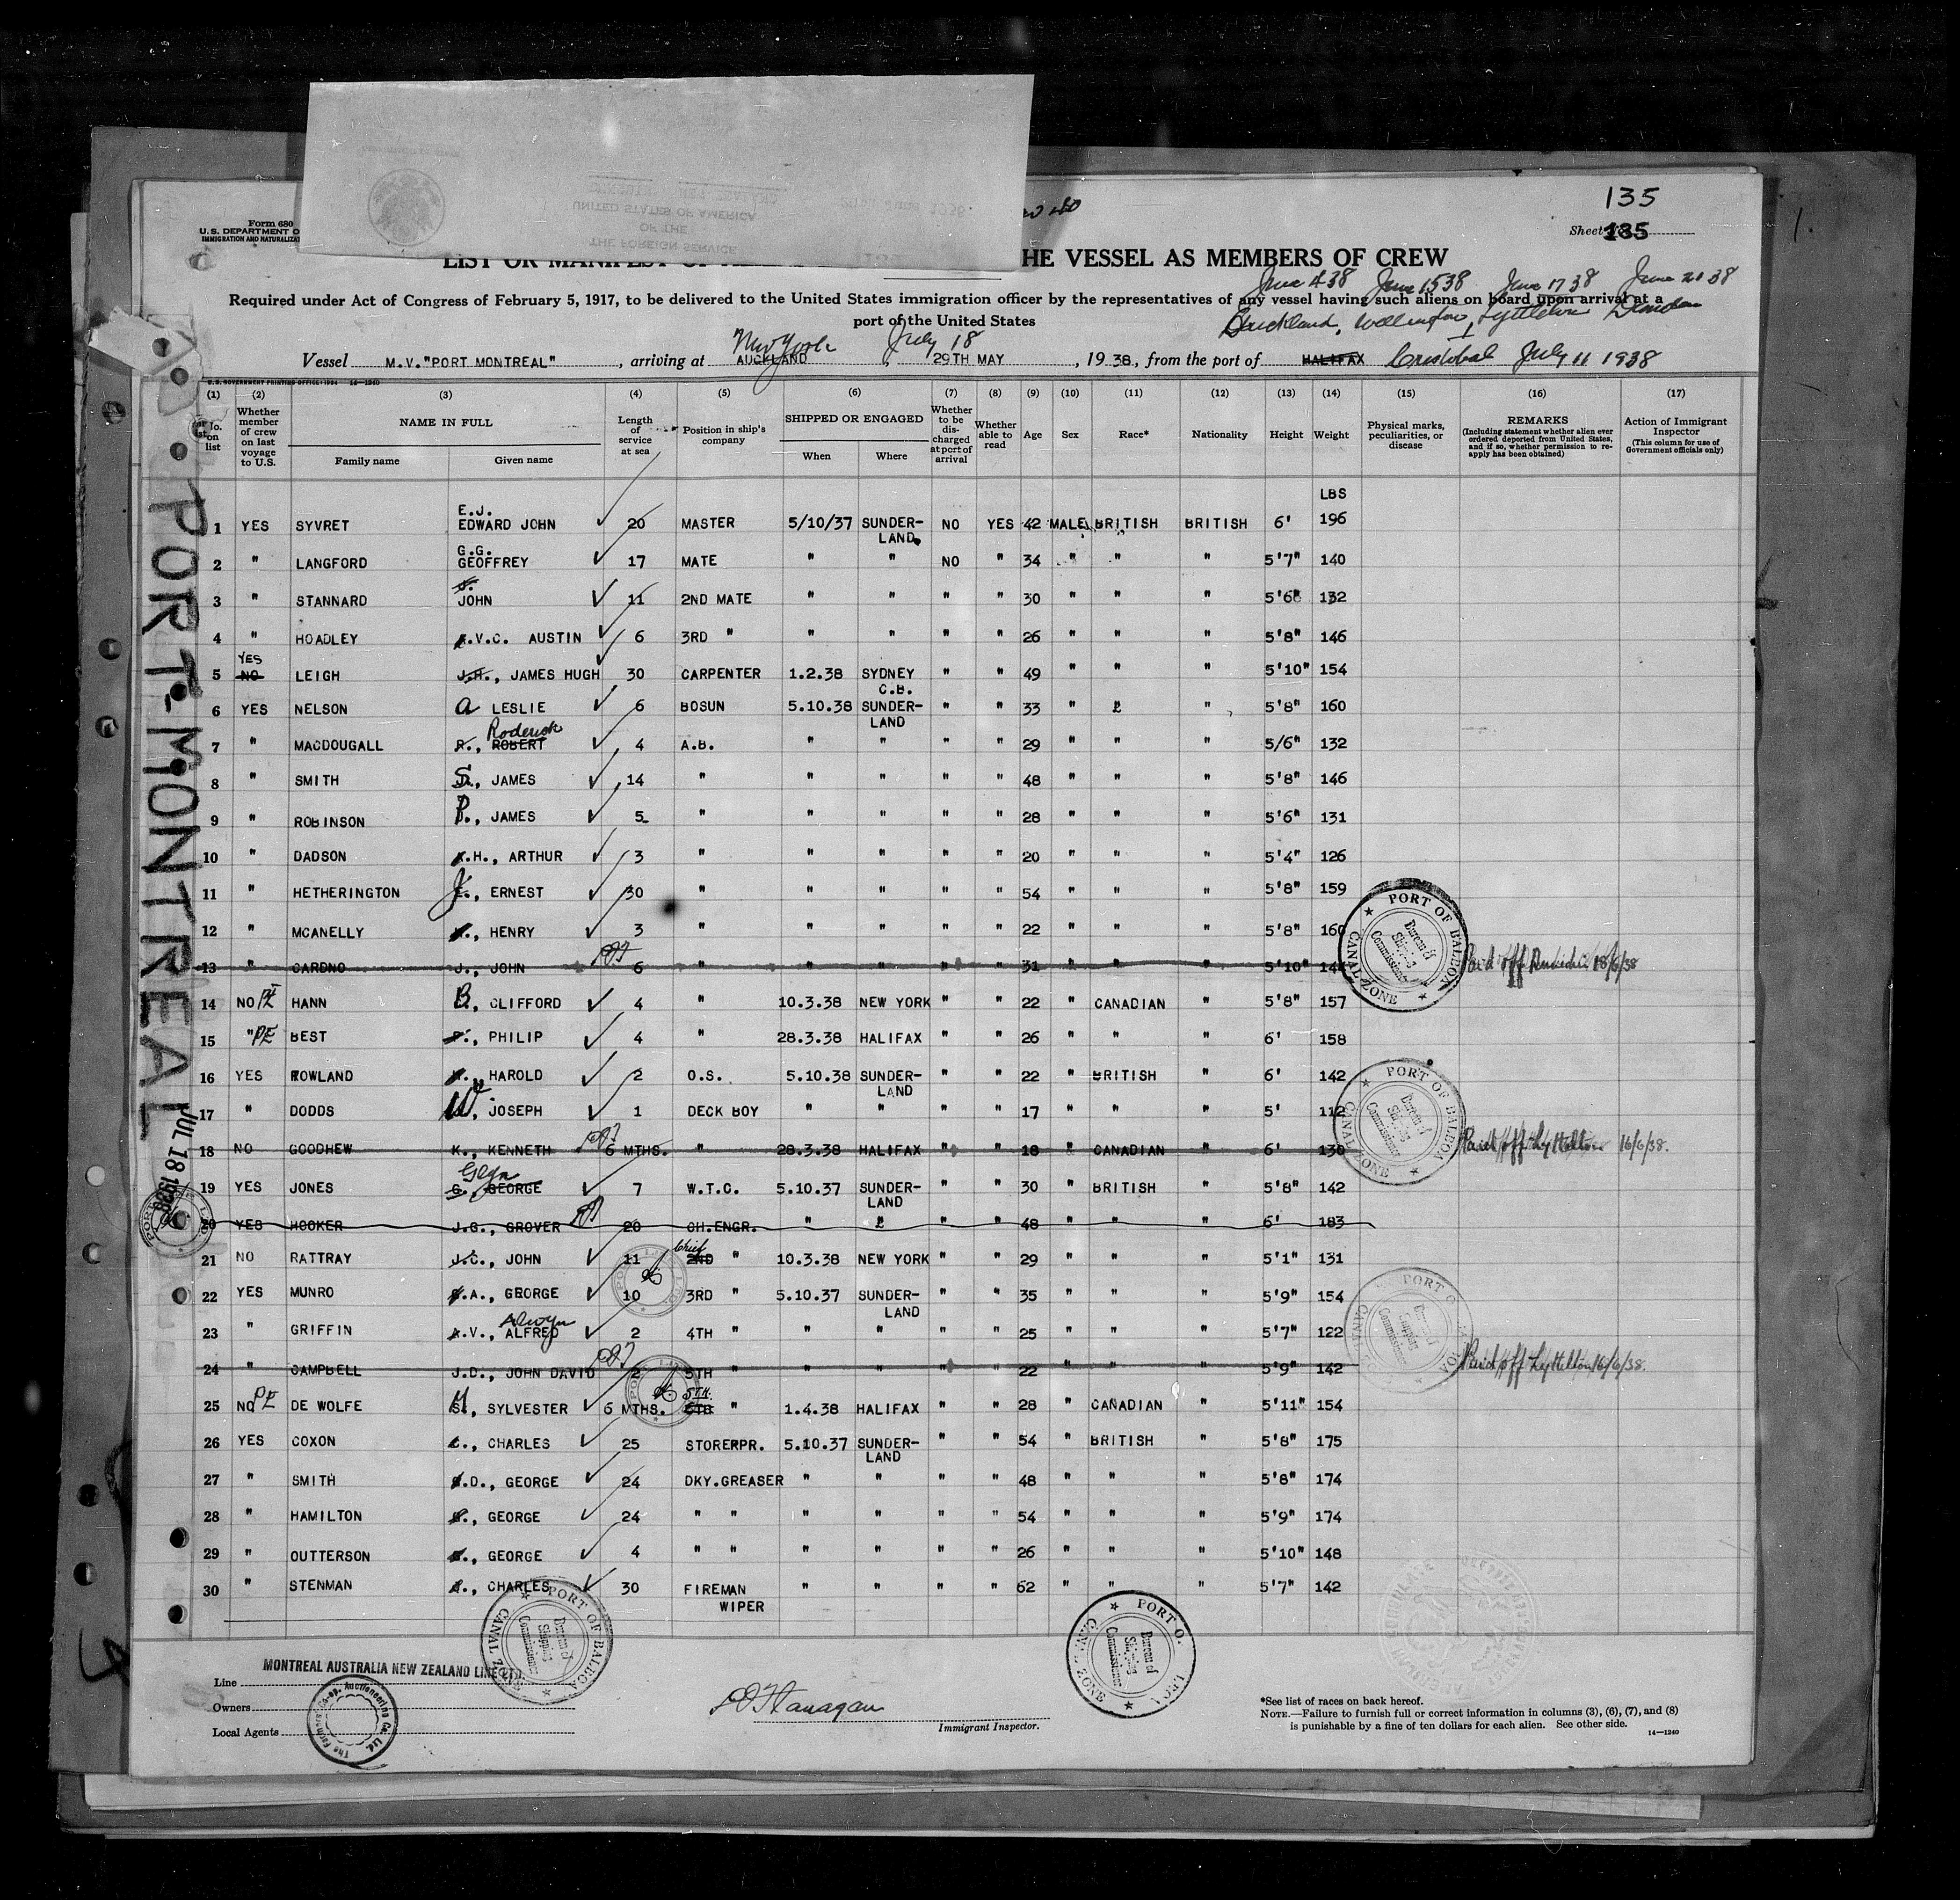 135
Sheet 135
Form 680
U.S. DEPARTMENT O
IMMIGRATION AND NATURALIZAT
LIST OR MANIFEST OF
HE VESSEL AS MEMBERS OF CREW
June 4 38 June 15 38 June 17 38 June 21 38
Required under Act of Congress of February 5, 1917, to be delivered to the United States immigration officer by the representatives of any vessel having such aliens on board upon arrival at a
port of the United States
Auckland, Wellington, Lyttleton
New York July 18
Vessel M.V."PORT MONTREAL", arriving at AUCKLAND, 29TH MAY, 1938, from the port of HALIFAX Cristobal July 11 1938
U.S. GOVERNMENT PRINTING OFFICE: 1934 14—1240
(1) (2) (3) (4) (5) (6) (7) (8) (9) (10) (11) (12) (13) (14) (15) (16) (17)
No. on list
Whether member of crew on last voyage to U.S.
NAME IN FULL
Family name Given name
Length of service at sea
Position in ship's company
SHIPPED OR ENGAGED
When Where
Whether to be discharged at port of arrival
Whether able to read
Age
Sex
Race*
Nationality
Height
Weight
Physical marks, peculiarities, or disease
REMARKS
(Including statement whether alien ever ordered deported from United States, and if so, whether permission to reapply has been obtained)
Action of Immigrant Inspector
(This column for use of Government officials only)
LBS
E.J.
1 YES SYVRET EDWARD JOHN 20 MASTER 5/10/37 SUNDER-LAND NO YES 42 MALE BRITISH BRITISH 6' 196
G.G.
2 " LANGFORD GEOFFREY 17 MATE " " NO " 34 " " " 5'7" 140
J.
3 " STANNARD JOHN 11 2ND MATE " " " " 30 " " " 5'6" 132
4 " HOADLEY A.V.C. AUSTIN 6 3RD " " " " " 26 " " " 5'8" 146
YES
5 NO LEIGH J.H., JAMES HUGH 30 CARPENTER 1.2.38 SYDNEY C.B. " " 49 " " " 5'10" 154
6 YES NELSON a LESLIE 6 BOSUN 5.10.38 SUNDER-LAND " " 33 " " " 5'8" 160
Roderick
7 " MACDOUGALL R., ROBERT 4 A.B. " " " " 29 " " " 5/6" 132
8 " SMITH S., JAMES 14 " " " " " 48 " " " 5'8" 146
9 " ROBINSON P., JAMES 5 " " " " " 28 " " " 5'6" 131
10 " DADSON A.H., ARTHUR 3 " " " " " 20 " " " 5'4" 126
11 " HETHERINGTON J., ERNEST 30 " " " " " 54 " " " 5'8" 159
12 " MCANELLY HENRY 3 " " " " " 22 " " " 5'8" 160
13 " CARDNO J., JOHN 6 " " " " " 31 " " " 5'10" 144 Paid off Dunedin 18/6/38
14 NO PE HANN B., CLIFFORD 4 " 10.3.38 NEW YORK " " 22 " CANADIAN " 5'8" 157
15 " PE BEST P., PHILIP 4 " 28.3.38 HALIFAX " " 26 " " " 6' 158
16 YES ROWLAND HAROLD 2 O.S. 5.10.38 SUNDER-LAND " " 22 " BRITISH " 6' 142
17 " DODDS W, JOSEPH 1 DECK BOY " " " " 17 " " " 5' 112
18 NO GOODHEW K., KENNETH 6 MTHS. " 28.3.38 HALIFAX " " 18 " CANADIAN " 6' 130 Paid off Lyttelton 16/6/38.
Glyn
19 YES JONES G., GEORGE 7 W.T.O. 5.10.37 SUNDER-LAND " " 30 " BRITISH " 5'8" 142
20 YES HOOKER J.G., GROVER 20 CH.ENGR. " " " " 48 " " " 6' 183
Chief
21 NO RATTRAY J.C., JOHN 11 2ND " 10.3.38 NEW YORK " " 29 " " " 5'1" 131
22 YES MUNRO G.A., GEORGE 10 3RD " 5.10.37 SUNDER-LAND " " 35 " " " 5'9" 154
Alwyn
23 " GRIFFIN A.V., ALFRED 2 4TH " " " " " 25 " " " 5'7" 122
24 " CAMPBELL J.D., JOHN DAVID 2 5TH " " " " " 22 " " " 5'9" 142 Paid off Lyttelton 16/6/38.
5TH.
25 NO PE DE WOLFE M, SYLVESTER 6 MTHS. 6TH " 1.4.38 HALIFAX " " 28 " CANADIAN " 5'11" 154
26 YES COXON C., CHARLES 25 STORERPR. 5.10.37 SUNDER-LAND " " 54 " BRITISH " 5'8" 175
27 " SMITH G.D., GEORGE 24 DKY.GREASER " " " " 48 " " " 5'8" 174
28 " HAMILTON GEORGE 24 " " " " " " 54 " " " 5'9" 174
29 " OUTTERSON GEORGE 4 " " " " " " 26 " " " 5'10" 148
30 " STENMAN CHARLES 30 FIREMAN WIPER " " " " 62 " " " 5'7" 142
PORT MONTREAL
JUL 18 1938
PORT OF BALBOA CANAL ZONE Bureau of Shipping Commissioner
PORT OF BALBOA CANAL ZONE Bureau of Shipping Commissioner
MONTREAL AUSTRALIA NEW ZEALAND LINE LTD.
Line
Owners
Local Agents
Co-op. Auctioneering Co. Ltd.
Immigrant Inspector.
*See list of races on back hereof.
NOTE.—Failure to furnish full or correct information in columns (3), (6), (7), and (8)
is punishable by a fine of ten dollars for each alien. See other side.
14—1240